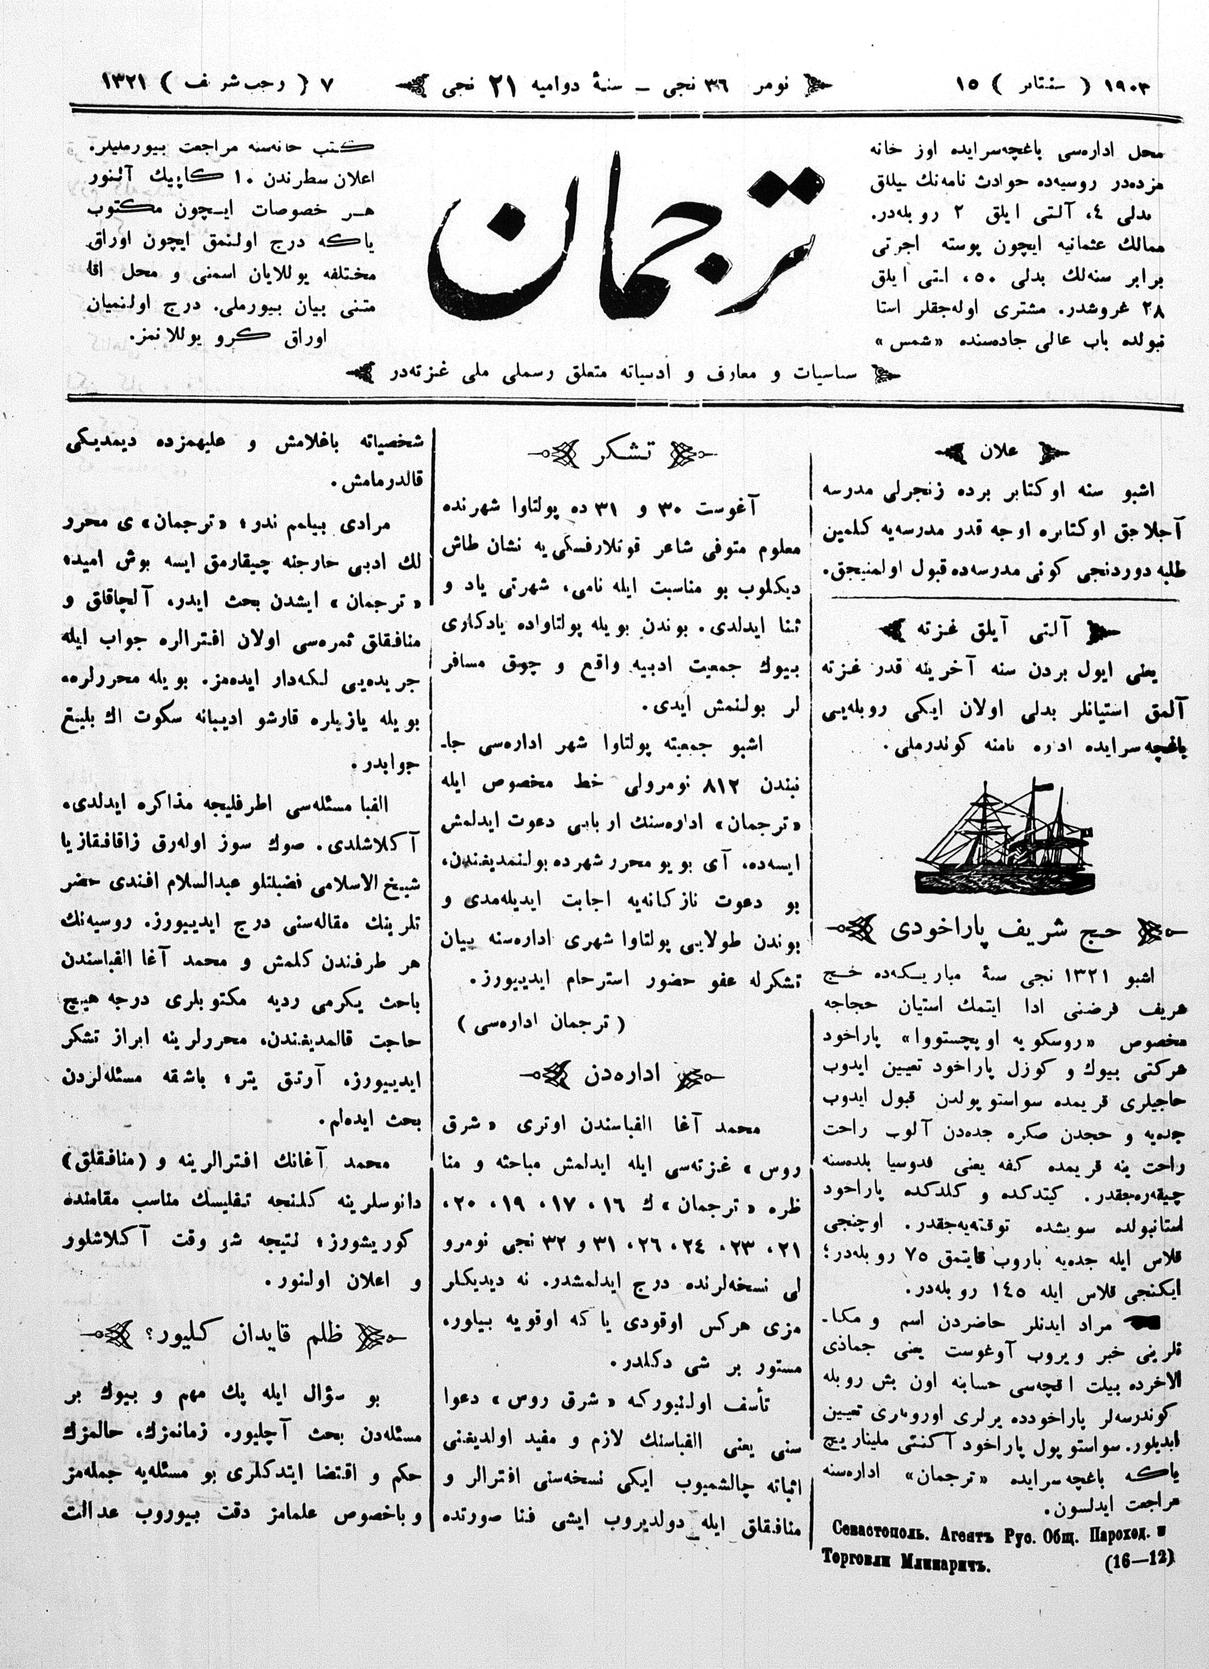 ١٩٠٣ ( سنتابر ) ١٥
نومر ٣٦ نجی ــ سنۀ دوامیه 21 نجی
٧ ( رجب شریف ) ١٣٢١
محل اداره‌سی باغچه‌سرایده اوز خانه
مزده‌در روسیه‌ده حوادث نامه‌نك ییللق
بدلی ٤، آلتی ایلق ٢ روبله‌در.
ممالك عثمانیه ایچون پوسته اجرتی
برابر سنه‌لك بدلی ٥٠، ایتی ایلق
٢٨ غروشدر. مشتری اوله‌جقلر استا
نبولده باب عالی جاده‌سنده «شمس»
ترجمان
كتب خانه‌سنه مراجعت بیورملیلر.
اعلان سطرندن ١٠ كاپیك آلنور
هر خصوصات ایچون مكتوب
یاكه درج اولنمق ایچون اوراق
مختلفه یوللایان اسمنی و محل اقا
متنی بیان بیورملی. درج اولنمیان
اوراق كرو یوللانمز.
سیاسیات و معارف و ادبیاته متعلق رسملی ملی غزته‌در
علان
اشبو سنه اوكتابر برده زنجرلی مدرسه
آجلاجق اوكتابره اوجه قدر مدرسه‌یه كلمین
طلبه دوردنجی كونی مدرسه‌ده قبول اولمنیجق.
آلتی آیلق غزته
یعنی ایول بردن سنه آخرینه قدر غزته
آلمق استیانلر بدلی اولان ایكی روبله‌یی
باغچه‌سرایده اداره نامنه كوندرملی.
حج شریف پاراخودی
اشبو ١٣٢١ نجی سنۀ مباریكه‌ده حج
شریف فرضنی ادا ایتمك استیان حجاجه
مخصوص «روسكویه اوبچستووا» پاراخود
شركتی بیوك و كوزل پاراخود تعیین ایدوب
حاجیلری قریمده سواستوپولدن قبول ایدوب
جدەیه و حجدن صكره جدەدن آلوب راحت
راحت ینه قریمده كفه یعنی فدوسیا بلده‌سنه
چیقه‌ره‌جقدر. كیتدكده و كلدكده پاراخود
استانبولده سویشده توقته‌یه‌جقدر. اوچنجی
قلاس ایله جدەیه باروب قایتمق ٧٥ روبله‌در؛
ایكنجی قلاس ایله ١٤٥ روبله‌در.
مراد ایدنلر حاضردن اسم و مكا۔
نلرینی خبر ویروب آوغوست یعنی جماذی
الاخرده بیلت اقچه‌سی حسابنه اون بش روبله
كوندرسه‌لر پاراخودده یرلری اوروناری تعیین
ایدیلور. سواستوپول پاراخود آكنتی ملیناریچ
یاكه باغچه‌سرایده «ترجمان» اداره‌سنه
مراجعت ایدلسون.
Севастополь. Агентъ Рус. Общ. Пароход. и
Торговли Млинаричъ. (16—12)
تشكر
آغوست ٣٠ و ٣١ ده پولتاوا شهرنده
معلوم متوفی شاعر قوتلارفسكی‌یه نشان طاش
دیكلوب بو مناسبت ایله نامی، شهرتی یاد و
ثنا ایدلدی. بوندن بویله پولتاواده یادكاری
بیوك جمعیت ادبیه واقع و چوق مسافر
لر بولنمش ایدی.
اشبو جمعیته پولتاوا شهر اداره‌سی جا۔
نبندن ٨١٢ نومرولی خط مخصوص ایله
«ترجمان» اداره‌سنك اربابی دعوت ایدلمش
ایسه‌ده، آی بویو محرر شهرده بولنمدیغندن،
بو دعوت نازكانه‌یه اجابت ایدیله‌مدی و
بوندن طولایی پولتاوا شهری اداره‌سنه بیان
تشكرله عفو حضور استرحام ایدییورز.
( ترجمان اداره‌سی )
اداره‌دن
محمد آغا الفباسندن اوتری «شرق
روس» غزته‌سی ایله ایدلمش مباحثه و منا
ظره «ترجمان»ك ١٦، ١٧، ١٩، ٢٠،
٢١، ٢٣، ٢٤، ٢٦، ٣١ و ٣٢ نجی نومرو
لی نسخه‌لرنده درج ایدلمشدر. نه دیدیكلر
مزی هركس اوقودی یا كه اوقویه بیلور،
مستور بر شی دكلدر.
تأسف اولنیوركه «شرق روس» دعوا
سنی یعنی الفباسنك لازم و مفید اولدیغنی
اثباته چالشمیوب ایكی نسخه‌سنی افترالر و
منافقاق ایله دولدیروب ایشی فنا صورتده
شخصیاته باغلامش و علیهمزده دیمدیكی
قالدرمامش.
مرادی بیلمم ندر؛ «ترجمان»ی محرر
لك ادبی خارجنه چیقارمق ایسه بوش امیده
«ترجمان» ایشدن بحث ایدر، آلچاقلق و
منافقاق ثمره‌سی اولان افترالره جواب ایله
جریده‌یی لكه‌دار ایده‌مز. بویله محررلره،
بویله یازیلره قارشو ادیبانه سكوت اك بلیغ
جوابدر.
الفبا مسئله‌سی اطرفلیجه مذاكره ایدلدی،
آكلاشلدی. صوك سوز اوله‌رق زاقافقازیا
شیخ الاسلامی فضیلتلو عبدالسلام افندی حضر
تلرینك مقاله‌سنی درج ایدییورز. روسیه‌نك
هر طرفندن كلمش و محمد آغا الفباسندن
باحث یكرمی ردیه مكتوبلری درجه هیچ
حاجت قالمدیغندن، محررلرینه ابراز تشكر
ایدییورز، آرتق یتر؛ باشقه مسئله‌لردن
بحث ایده‌لم.
محمد آغانك افترالرینه و (منافقلق)
دانوسلرینه كلنجه تفلیسك مناسب مقامنده
كوریشورز؛ نتیجه شو وقت آكلاشلور
و اعلان اولنور.
ظلم قایدان كلیور؟
بو سؤال ایله پك مهم و بیوك بر
مسئله‌دن بحث آچلیور. زمانه‌مزك، حالمزك
حكم و اقتضا ایتدكلری بو مسئله‌یه جمله‌مز
و باخصوص علمامز دقت بیوروب عدالت